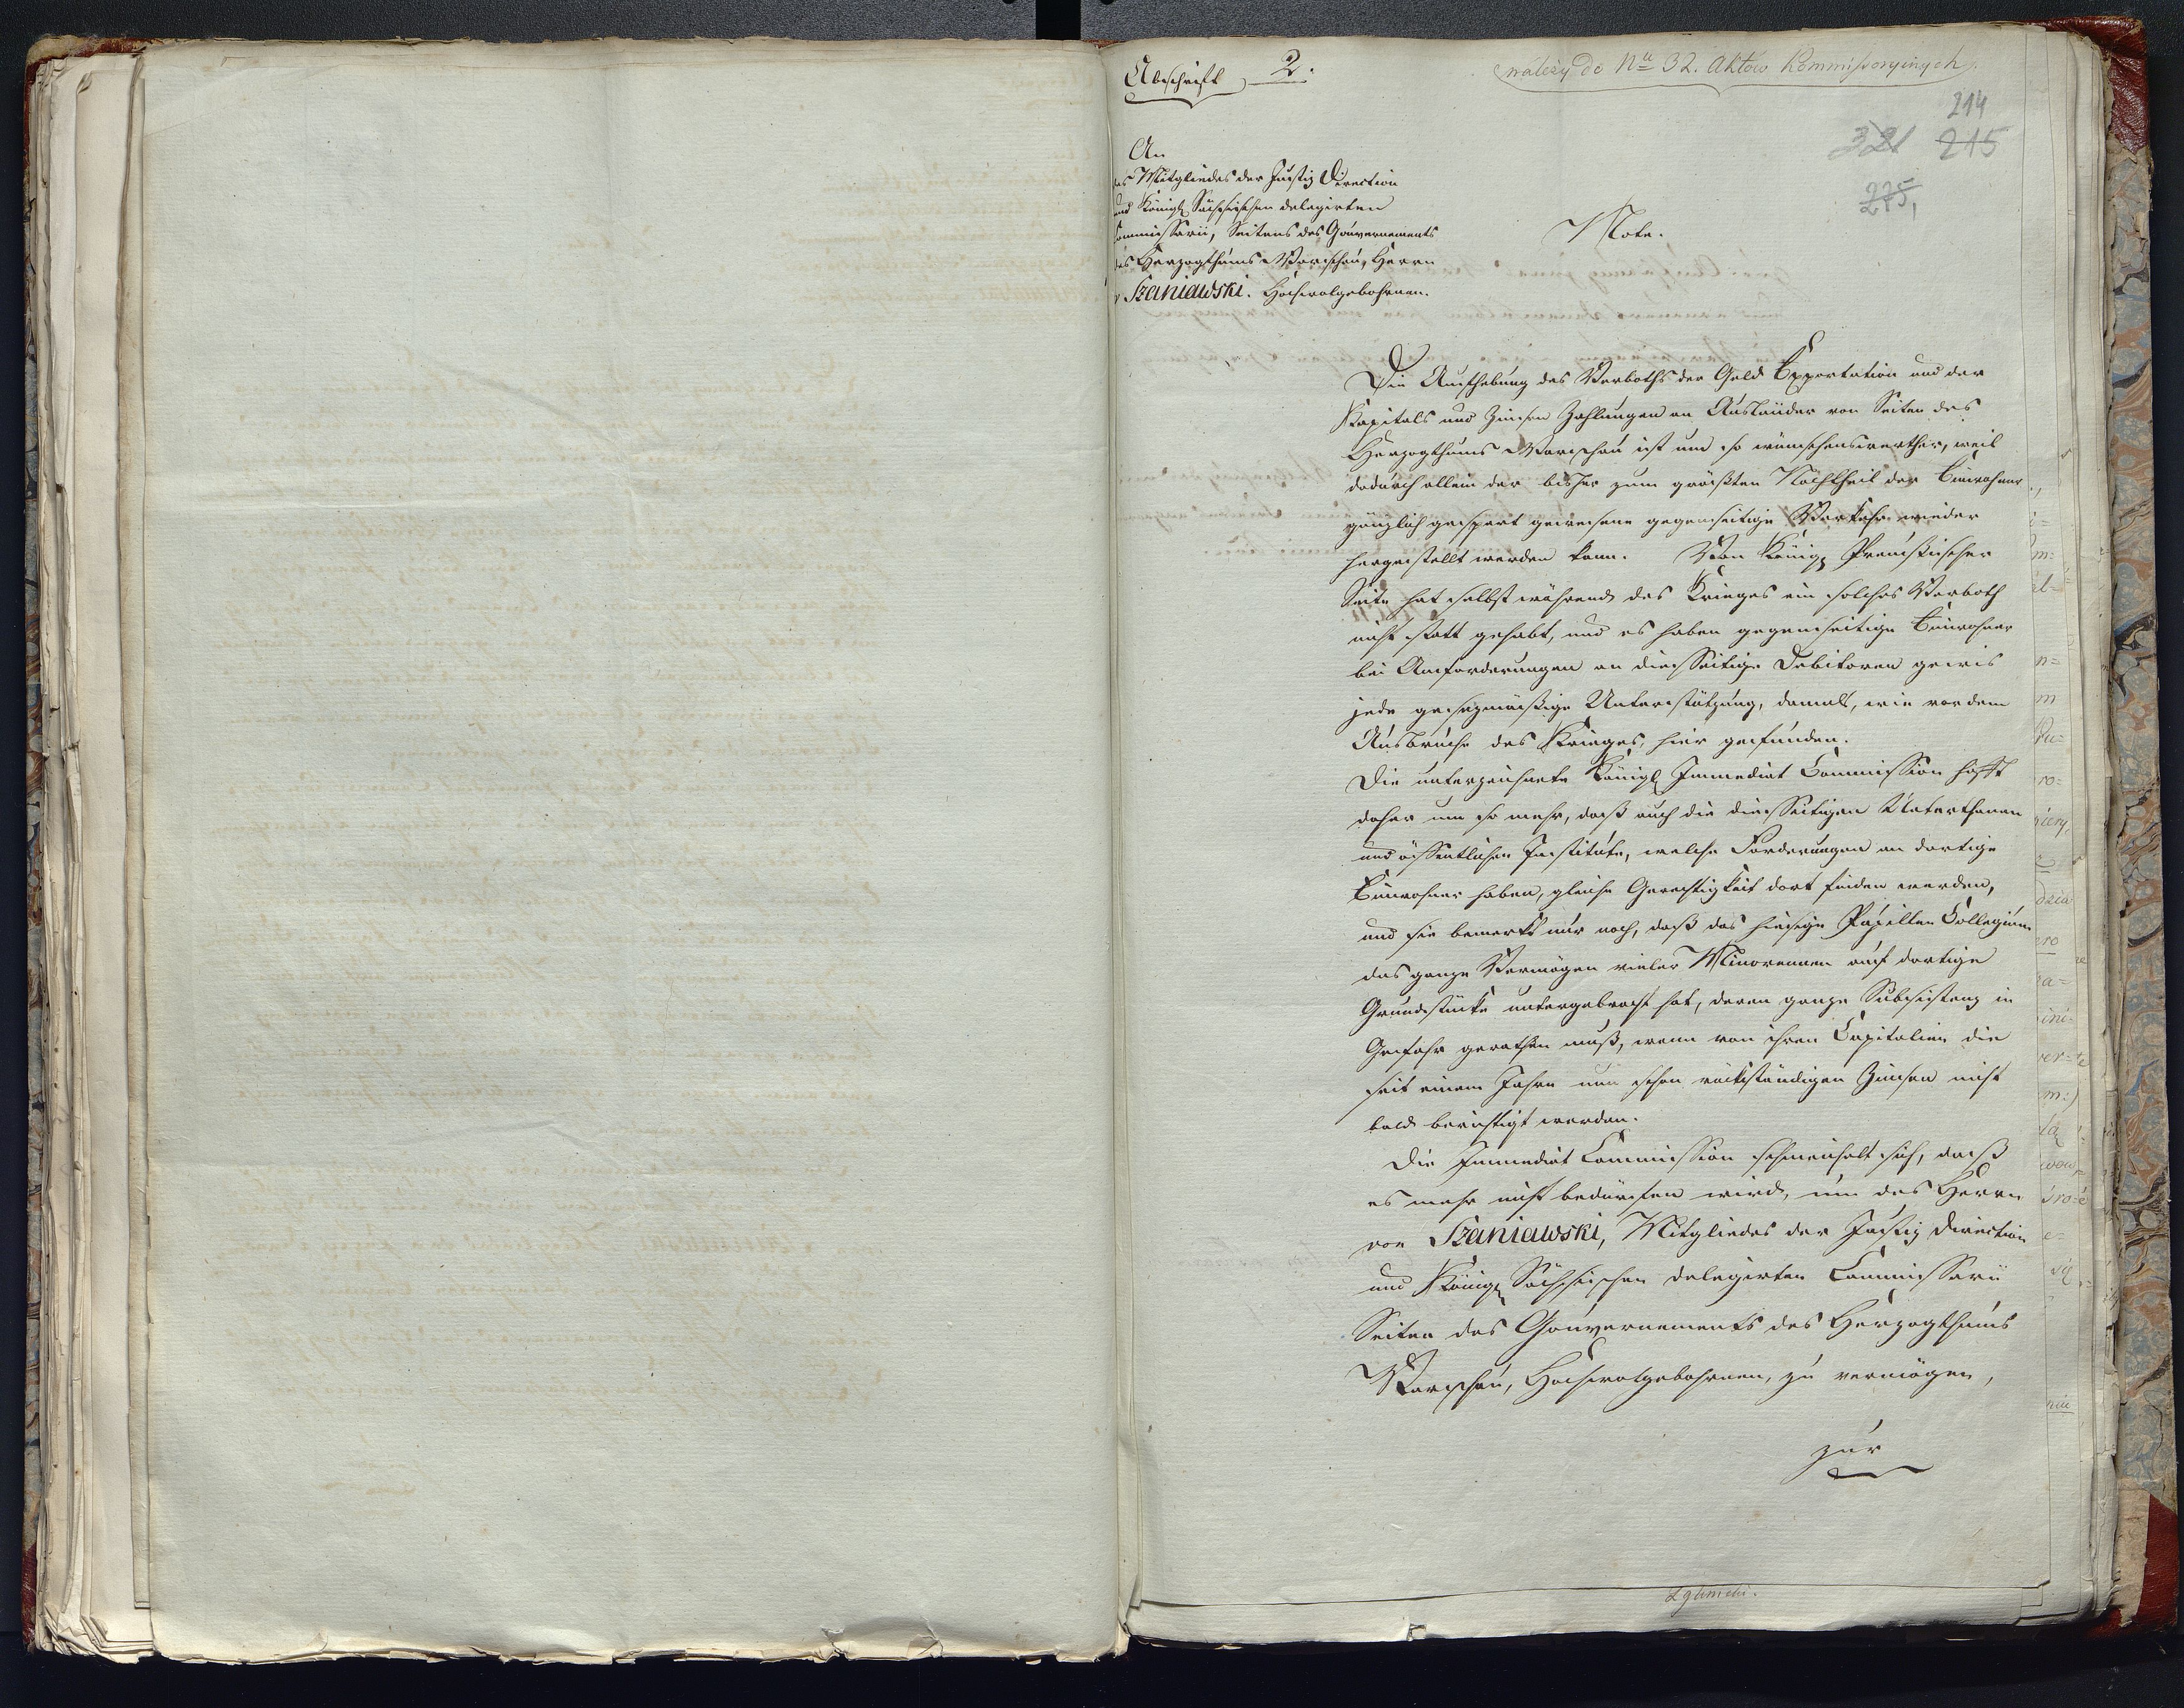 Abschrift 2.
(należy do Nu 32. Aktów Kommissoryinych)
214
321 215
275,
An
des Mitgliedes der Justiz Direction
und Königl Sächsischen delegirten
Commissarii, Seitens des Gouvernements
des Herzogthums Warschau, Herrn
v Szaniawski. Hochwolgebohrnen.
Note.
Die Aufhebung des Verboths der Geld Exportation und der
Kapitals und Zinsen Zahlungen an Ausländer von Seiten des
Herzogthums Warschau ist um so wünschenswerther, weil
dadurch allein der bisher zum größten Nachtheil der Einwohner
gänzlich gesperrt gewesene gegenseitige Verkehr wieder
hergestellt werden kann. Von Königl Preussischer
Seite hat selbst während des Krieges ein solches Verboth
nicht statt gehabt, und es haben gegenseitige Einwohner
bei Anforderungen an diesseitige Debitoren gewis
jede gesezmäßige Unterstützung, damals, wie vor dem
Ausbruche des Krieges, hier gefunden.
Die unterzeichnete Königl Immediat Commission hofft
daher um so mehr, daß auch die diesseitigen Unterthanen
und öffentlichen Institute, welche Forderungen an dortige
Einwohner haben, gleiche Gerechtigkeit dort finden werden,
und sie bemerkt nur noch, daß das hiesige Pupillen Collegium
das ganze Vermögen vieler Minorennen auf dortige
Grundstücke untergebracht hat, deren ganze Subsistenz in
Gefahr gerathen muß, wenn von ihren Capitalien die
seit einem Jahre nun schon rückständigen Zinsen nicht
bald berichtigt werden.
Die Immediat Commission schmeichelt sich, daß
es mehr nicht bedürfen wird, um des Herrn
von Szaniawski, Mitgliedes der Justiz Direction
und Königl Sächsischen delegirten Commissarii
Seiten des Gouvernements des Herzogthums
Warschau, Hochwolgebohrnen, zu vermögen,
zur